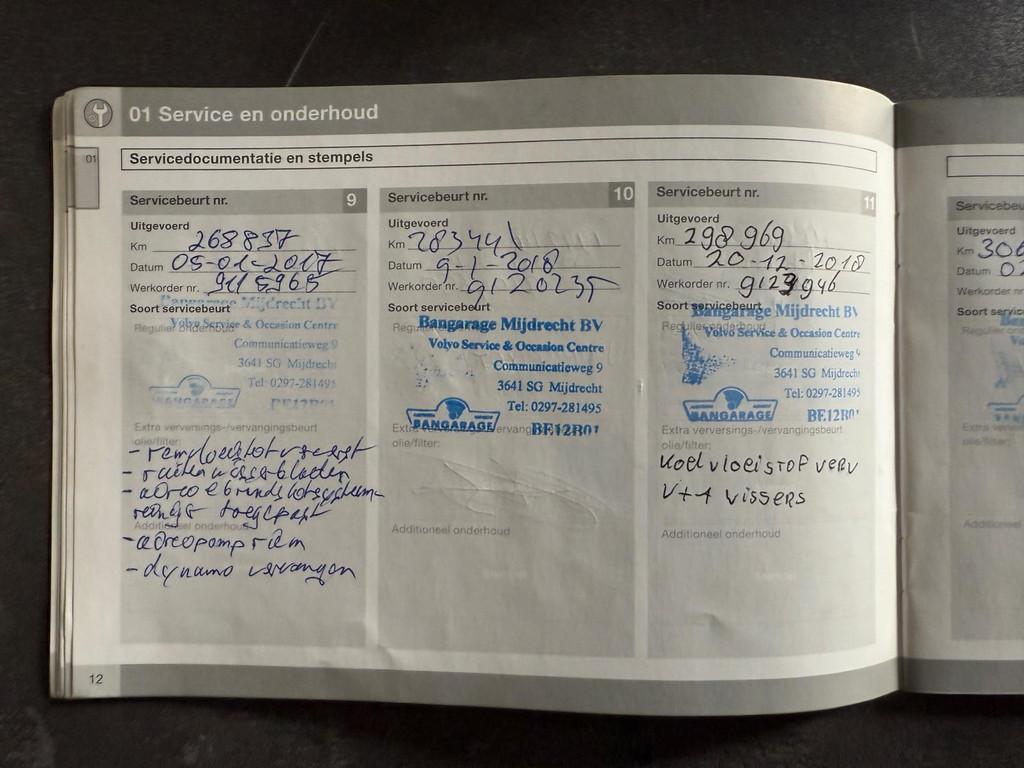 01 Service en onderhoud
01
Servicedocumentatie en stempels
Servicebeurt nr. 9
Uitgevoerd
Km 268837
Datum 05-01-2017
Werkorder nr. 9115965
Soort servicebeurt
Bangarage Mijdrecht BV
Regulier onderhoud
Volvo Service & Occasion Centre
Communicatieweg 9
3641 SG Mijdrecht
Tel: 0297-281495
BANGARAGE BE12R01
Extra verversings-/vervangingsbeurt
olie/filter:
- remvloeistof ververst
- ruitenwisserbladen
-
Additioneel onderhoud
-
- dynamo vervangen
Servicebeurt nr. 10
Uitgevoerd
Km 283441
Datum 9-1-2018
Werkorder nr. 9120235
Soort servicebeurt
Bangarage Mijdrecht BV
Volvo Service & Occasion Centre
Communicatieweg 9
3641 SG Mijdrecht
Tel: 0297-281495
BANGARAGE BE12R01
Extra verversings-/vervangingsbeurt
olie/filter:
Additioneel onderhoud
Servicebeurt nr. 11
Uitgevoerd
Km 298969
Datum 20-12-2018
Werkorder nr. 9123946
Soort servicebeurt
Bangarage Mijdrecht BV
Regulier onderhoud
Volvo Service & Occasion Centre
Communicatieweg 9
3641 SG Mijdrecht
Tel: 0297-281495
BANGARAGE BE12R01
Extra verversings-/vervangingsbeurt
olie/filter:
Koelvloeistof verv
V+A vissers
Additioneel onderhoud
12
Servicebeu
Uitgevoerd
Km 306
Datum 0
Werkorder nr
Soort servic
Extra ververs
olie/filter:
Additioneel